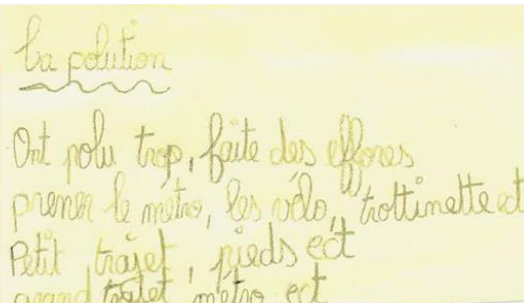 La polution
Ont polu trop, faite des effores
prener le métro, les vélo, trottinette ect
Petit trajet, pieds ect
grand trajet métro ect